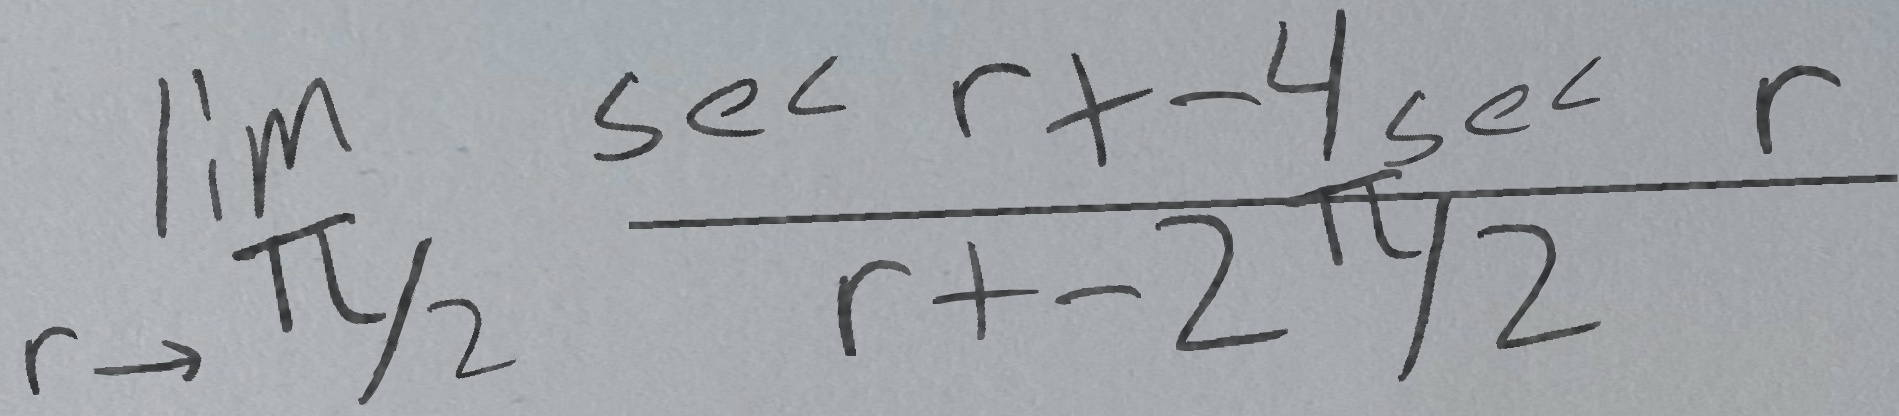 lim r→π/2 (sec r + -4 sec r) / (r + -2 π/2)